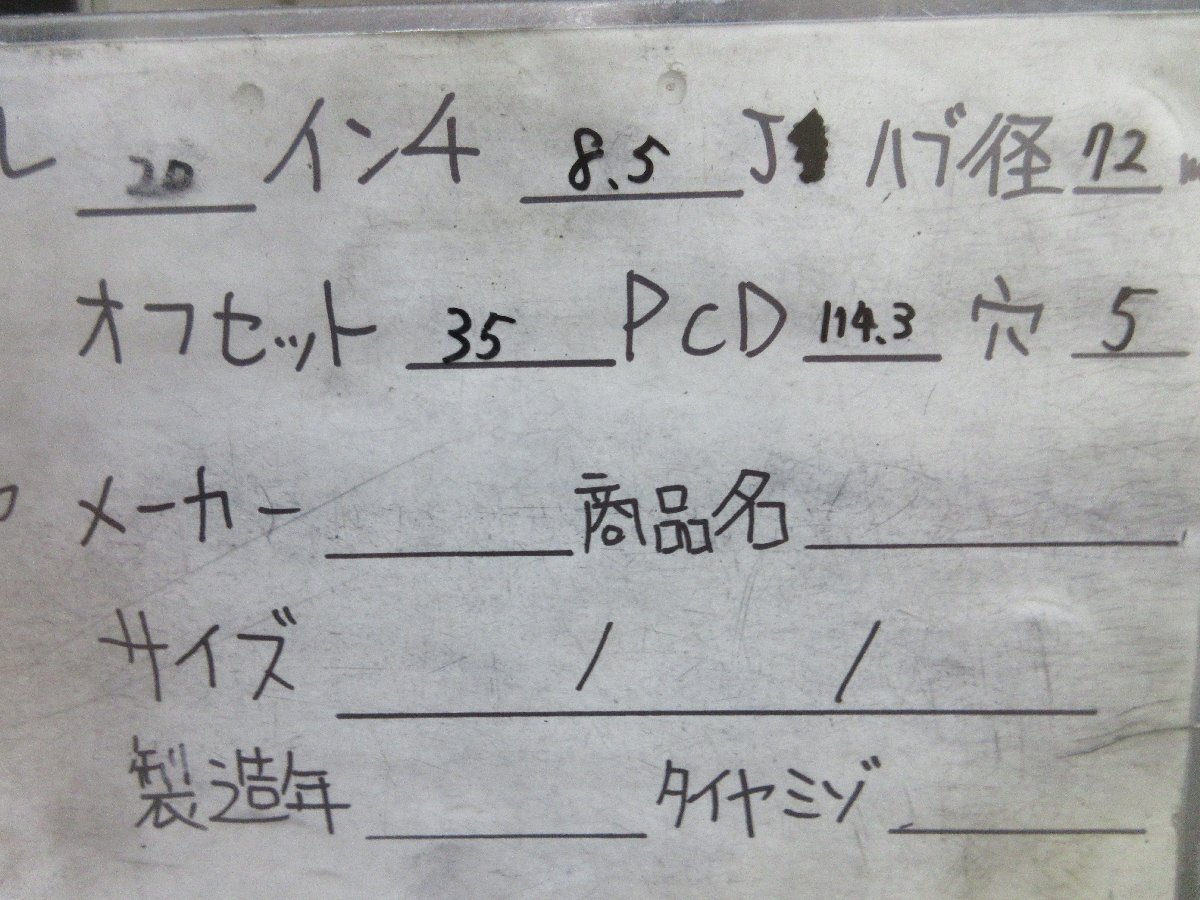 ル 20 インチ 8.5 J ハブ径 72 m
オフセット 35 PCD 114.3 穴 5
メーカー 商品名
サイズ / /
製造年 タイヤミゾ